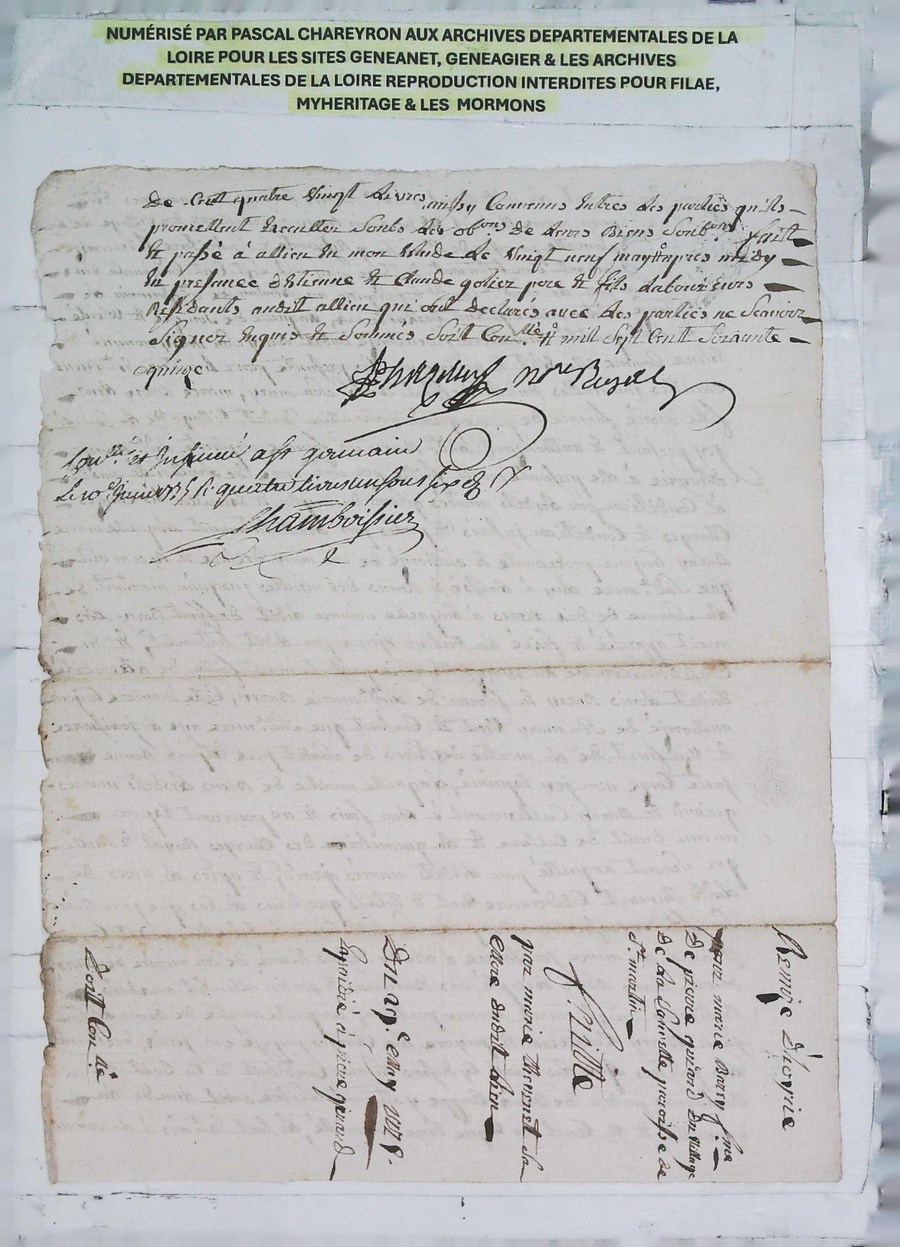 NUMÉRISÉ PAR PASCAL CHAREYRON AUX ARCHIVES DEPARTEMENTALES DE LA
LOIRE POUR LES SITES GENEANET, GENEAGIER & LES ARCHIVES
DEPARTEMENTALES DE LA LOIRE REPRODUCTION INTERDITES POUR FILAE,
MYHERITAGE & LES MORMONS
De Cent quatre Vingt Livres ainsy Convenus Entres Les parties qu'ils
promettent Executter Soubs Les obons de Leurs Biens Soubons fait
Et passé à allieu En mon Etude Le Vingt neuf may apres midy
En presance d'Etienne Et Claude goliez pere Et fils Laboureurs
Residants audit allieu qui ont declarés avec Les parties ne Scavoir
Signer Enquis Et Sommés Soit Conllé Et mil Sept Cent Soixante
quinze
nore Royal
Conllé et Insinué a St germain
Le 10 juin 1775 R. quatre livres un sous six d
Chamboissier
Remise D'hoyrie
pour marie Barry fme
De pierre girard Du Village
De La Lamotte paroisse de
St martin
par marie thevenet sa
mere dudit lieu
Du 29e may 1775
Expediée à pierre girard
Soit Conllé